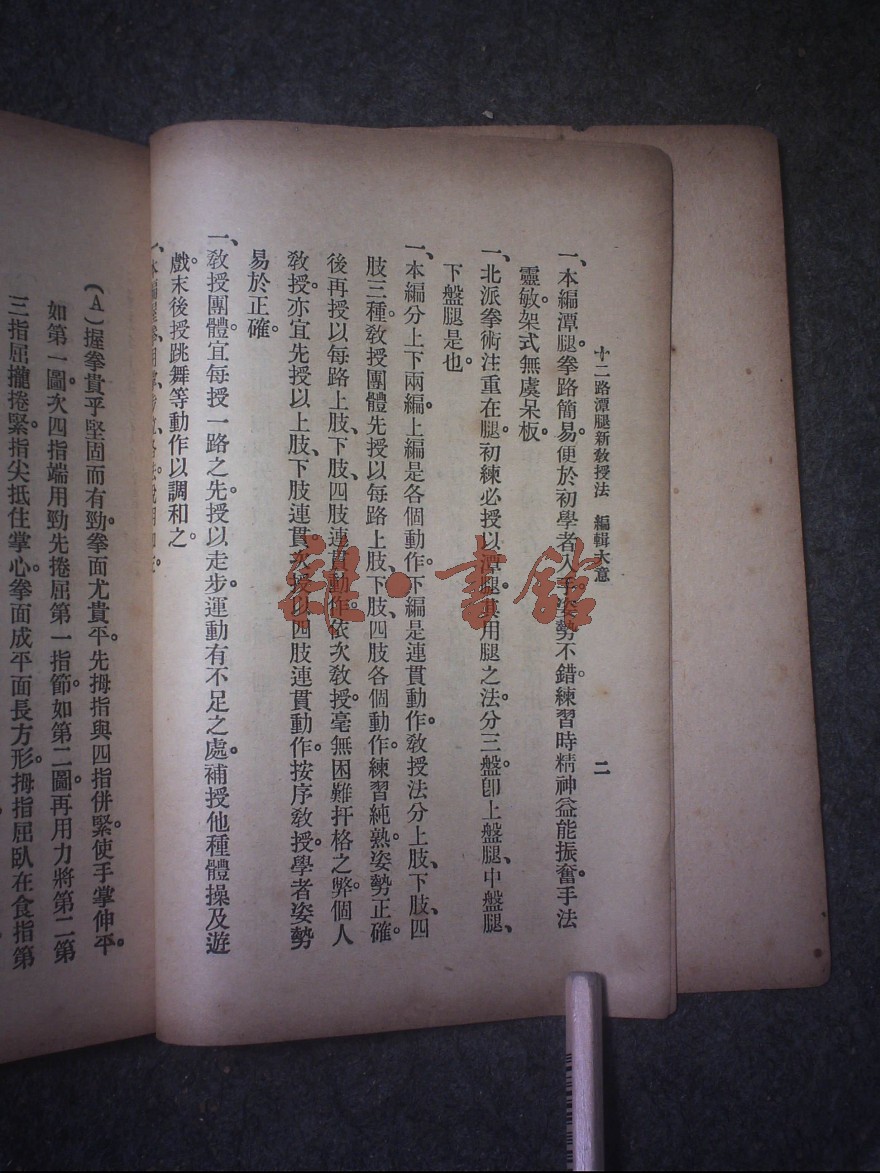 十二路潭腿新敎授法　編輯大意
二
一、本編潭腿。拳路簡易。便於初學者入手。姿勢不錯。練習時精神益能振奮。手法
靈敏。架式無虞呆板。
一、北派拳術注重在腿。初練必授以潭腿。其用腿之法。分三盤。卽上盤腿、中盤腿、
下盤腿是也。
一、本編分上下兩編。上編是各個動作。下編是連貫動作。敎授法分上肢、下肢、四
肢三種。敎授團體先授以每路上肢、下肢、四肢各個動作。練習純熟。姿勢正確。
後再授以每路上肢、下肢、四肢連貫動作。依次敎授。毫無困難扞格之弊。個人
敎授。亦宜先授以上肢、下肢連貫。次授以四肢連貫動作。按序敎授。學者姿勢
易於正確。
一、敎授團體。宜每授一路之先。授以走步。運動有不足之處。補授他種體操及遊
戲。末後授跳舞等動作以調和之。
一、本編握拳
(A)握拳貴乎堅固而有勁。拳面尤貴平。先拇指與四指併緊。使手掌伸平。
如第一圖。次四指端用勁先捲屈第一指節。如第二圖。再用力將第二第
三指屈攏捲緊。指尖抵住掌心。拳面成平面長方形。拇指屈臥在食指第
雜·書館